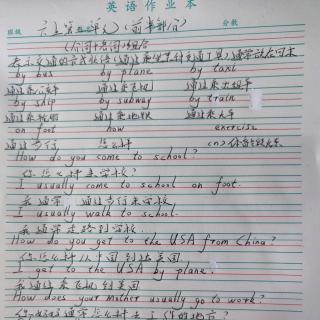 英语作业本
班级 分数
六上第一单元(前半部分)
(介词+名词)组合
表示交通的方式状语(通过乘坐某种交通工具)通常放在句末
by bus by plane by taxi
通过乘公共汽车 通过乘飞机 通过乘出租车
by ship by subway by train
通过乘轮船 通过乘地铁 通过乘火车
on foot how exercise
通过步行 怎么样 (n)
How do you come to school?
你怎么样来学校?
I usually come to school on foot.
我通常通过步行来学校
I usually walk to school.
我通常走路到学校
How do you get to the USA from China?
你怎么样从中国到达美国
I get to the USA by plane.
我通过乘飞机到美国
How does your mother usually go to work?
你妈妈通常怎么样去工作的地方?